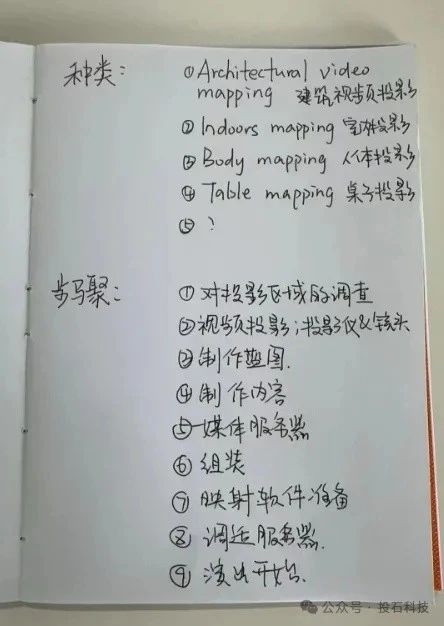 种类：
① Architectural video
mapping 建筑视频投影
② Indoors mapping 室内投影
③ Body mapping 人体投影
④ Table mapping 桌子投影
⑤ ?
步骤：
① 对投影区域的调查
② 视频投影；投影仪&镜头
③ 制作蓝图.
④ 制作内容
⑤ 媒体服务器
⑥ 组装
⑦ 映射软件准备
⑧ 调适服务器.
⑨ 演出开始.
公众号 · 投石科技